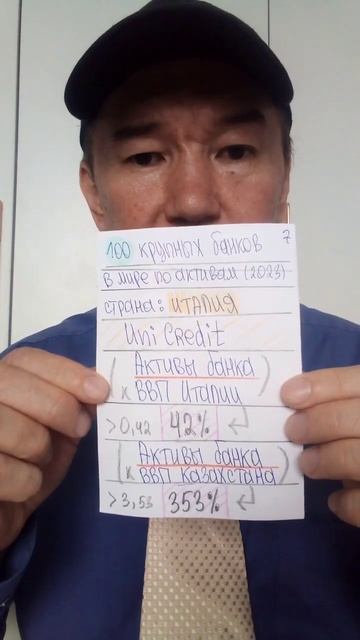 100 крупных банков 7
в мире по активам (2023)
страна: ИТАЛИЯ
Uni Credit
Активы банка
к ВВП Италии
>0,42 42%
Активы банка
к ВВП Казахстана
>3,53 353%